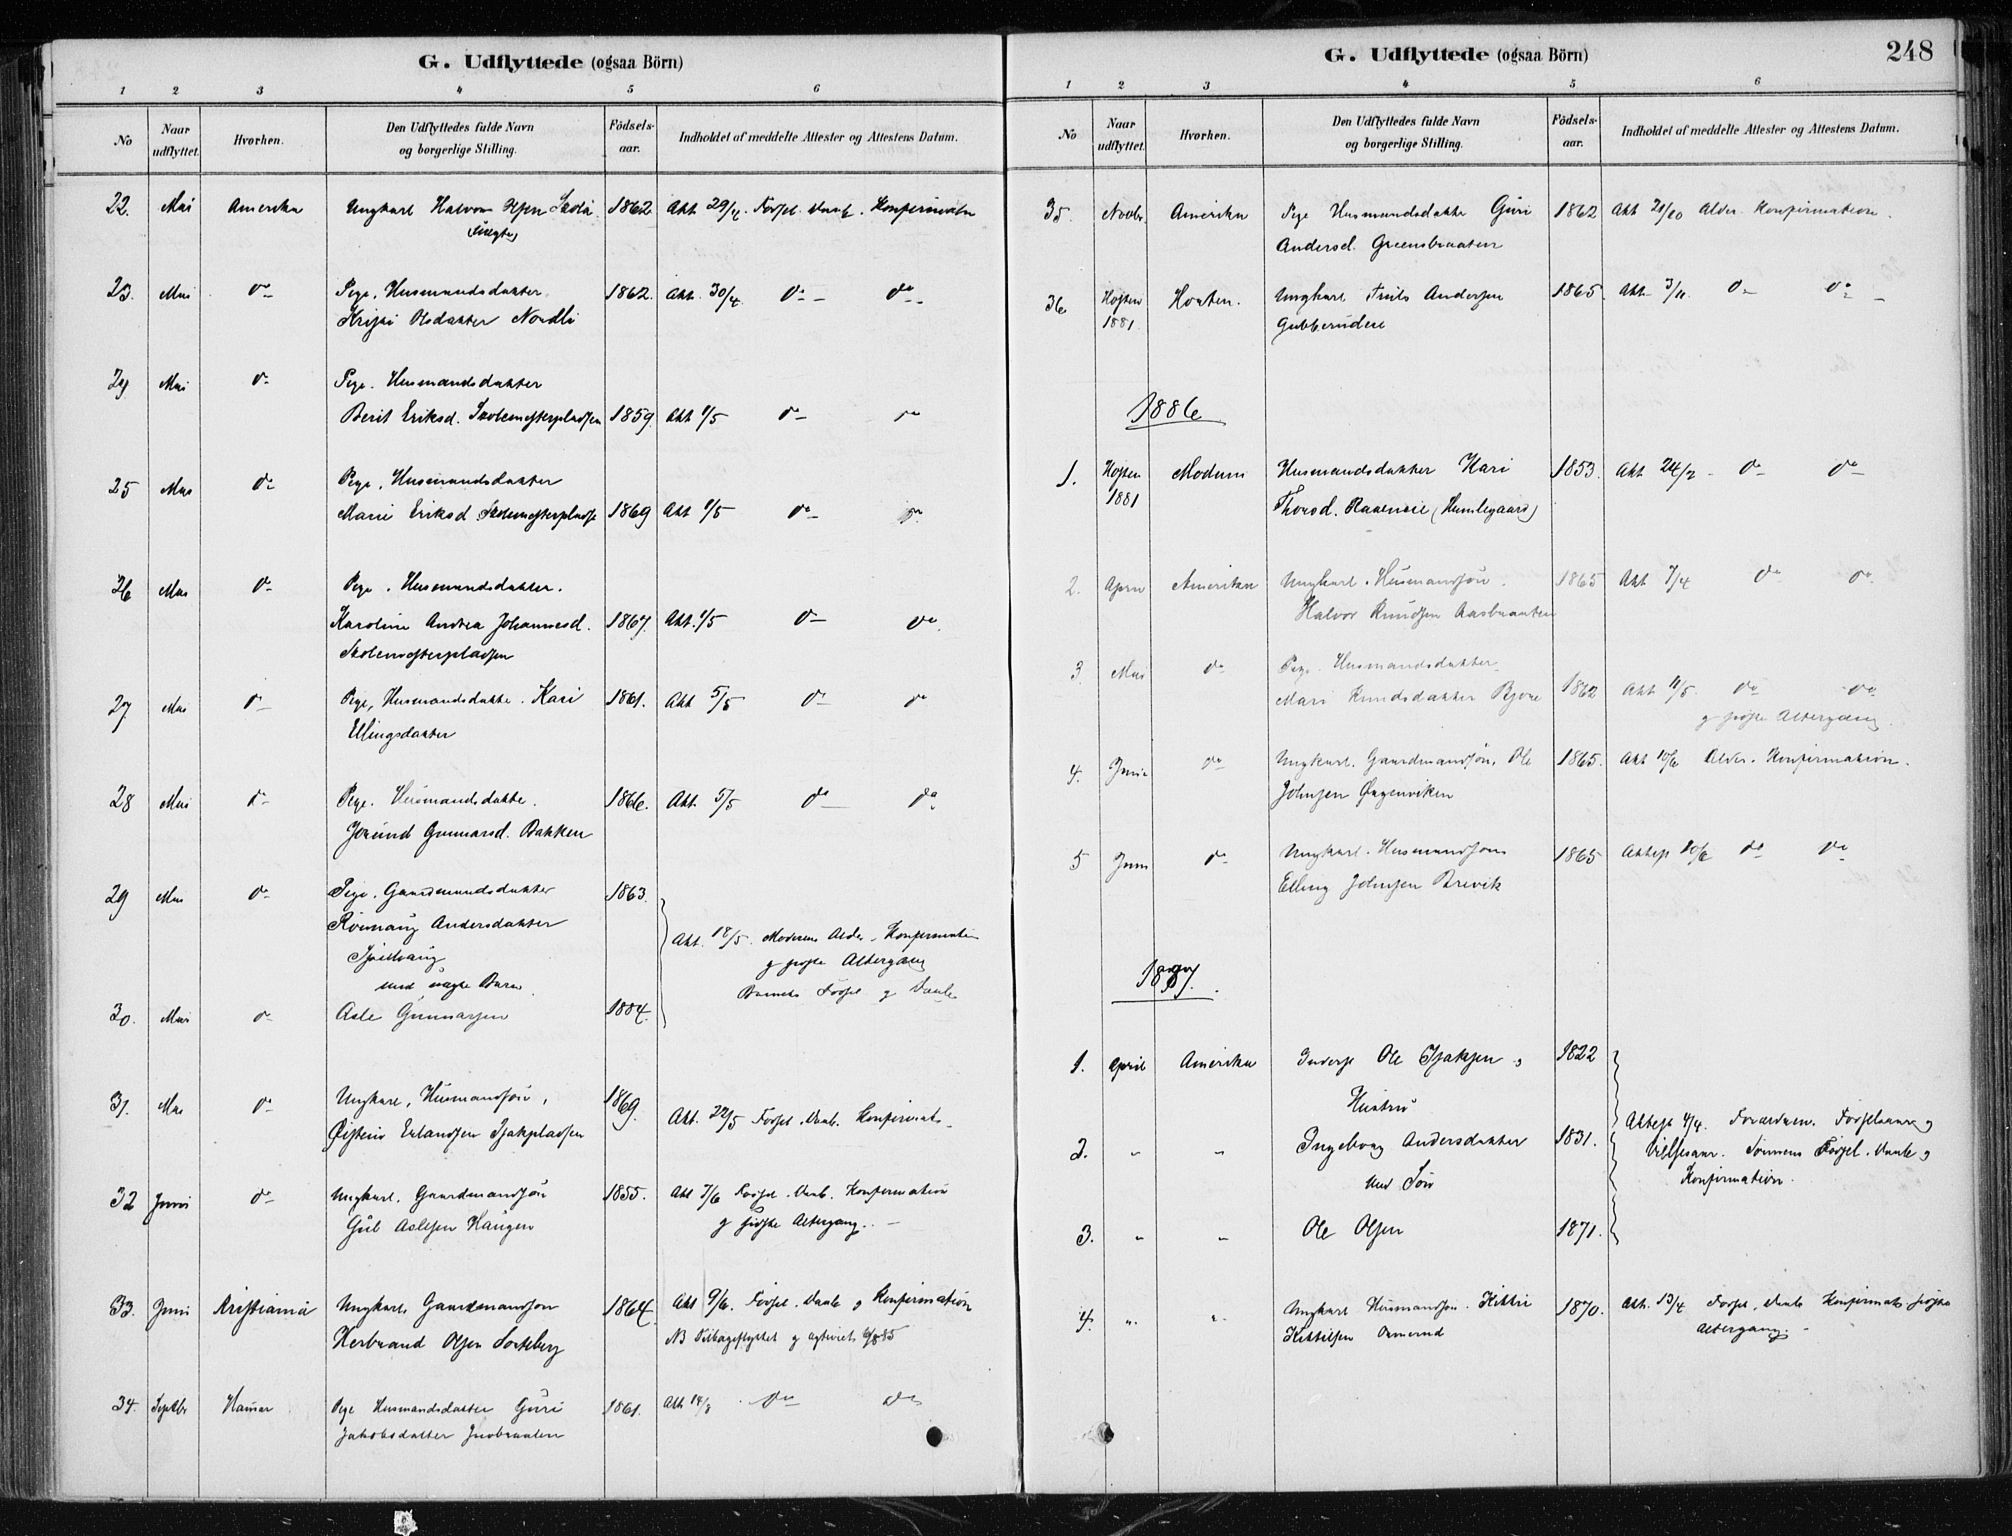 G. Udflyttede (ogsaa Börn)
1 2 3 4 5 6
No
Naar udflyttet.
Hvorhen.
Den Udflyttedes fulde Navn og borgerlige Stilling.
Födsels-aar.
Indholdet af meddelte Attester og Attestens Datum.
22. Mai Amerika Ungkarl Halvor Olsen 1862 Att 29/4. Fødsel. Daab. Konfirmation
23. Mai do Pige, Husmandsdatter 1862. Att. 30/4 do do
Kristi Olsdatter Nordli
24 Mai do Pige. Husmandsdatter
Berit Eriksd. 1859. Att 1/5 do do
25 Mai do Pige, Husmandsdatter
Marie Eriksd. 1869 Att 1/5 do do
26 Mai do Pige. Husmandsdatter.
Karoline Andrea Johannesd. 1867. Att. 1/5 do do
27 Mai do Pige, Husmandsdatte. Kari 1861. Att 5/5 do do
Ellingsdatter
28 Mai do Pige. Husmandsdatte. 1866. Att. 5/5 do do
Jorund Gunnarsd. Bakken
29 Mai do Pige. Gaardmandsdatter 1863.
Andersdatter
Att. 18/5. Moderens Alder. Konfirmation
g sidste Altergang
med uægte Barn
Barnets Fødsel g Daab
30. Mai do Asle Gunnarsen 1884.
31. Mai do Ungkarl, Husmandsøn, 1869.
Erlandsen Att. 22/5 Fødsel. Daab. Konfirmat.
32 Juni do Ungkarl. Gaardmandsøn 1855. Att 7/6 Fødsel. Daab. Konfirmation
Gul Aslesen Haugen g sidste Altergang.
33. Juni Kristiania Ungkarl. Gaardmandsøn 1864. Att 9/6. Fødsel. Daab g Konfirmation
Herbrand Olsen Sorteberg NB Tilbageflyttet
34. Septbr Hamar Pige Husmandsdatter Guri 1861. Att 14/8 do do
Jakobsdatter
G. Udflyttede (ogsaa Börn)
248
1 2 3 4 5 6
No
Naar udflyttet.
Hvorhen.
Den Udflyttedes fulde Navn og borgerlige Stilling.
Födsels-aar.
Indholdet af meddelte Attester og Attestens Datum.
35. Novbr Amerika Pige Husmandsdatte Guri 1862 Att 21/10 Alder. Konfirmation.
Andersd. Greensbraaten
36 Høsten Ungkarl Truls Andersen 1865. Att 3/11. do do
1881 Gubberudeie
1886
1. Høsten Modum Husmandsdatter Kari 1853. Att 24/2 do do
1881 Thorsd. (Humlegaard)
2. April Amerika Ungkarl. Husmandsøn. 1865 Att 7/4 do do
Halvor Knudsen Aasbraaten
3. Mai do Pige. Husmandsdatter
Mari Knudsdatter 1862 Att 11/5. do do
g sidste Altergang.
4. Juni do Ungkarl. Gaardmandsøn. Ole 1865. Att 10/6 Alder. Konfirmation.
Johnsen
5 Juni do Ungkarl. Husmandsøn 1865 Attest 10/6 do do
Elling Johnsen Brevik
1887.
1. April Amerika Inderst Ole Isaksen g 1822
Hustru
2. " " Ingeborg Andersdatter 1831.
Attest 4/4. Forældren. Fødselsaar g
Vielsesaar. Sønnens Fødsel. Daab g
Konfirmation.
med Søn
3. " " Ole Olsen 1871.
4. " " Ungkarl Husmandsøn. Kittil 1870. Att. 13/4 Fødsel, Daab Konfirmat. sidste
Kittilsen Altergang.